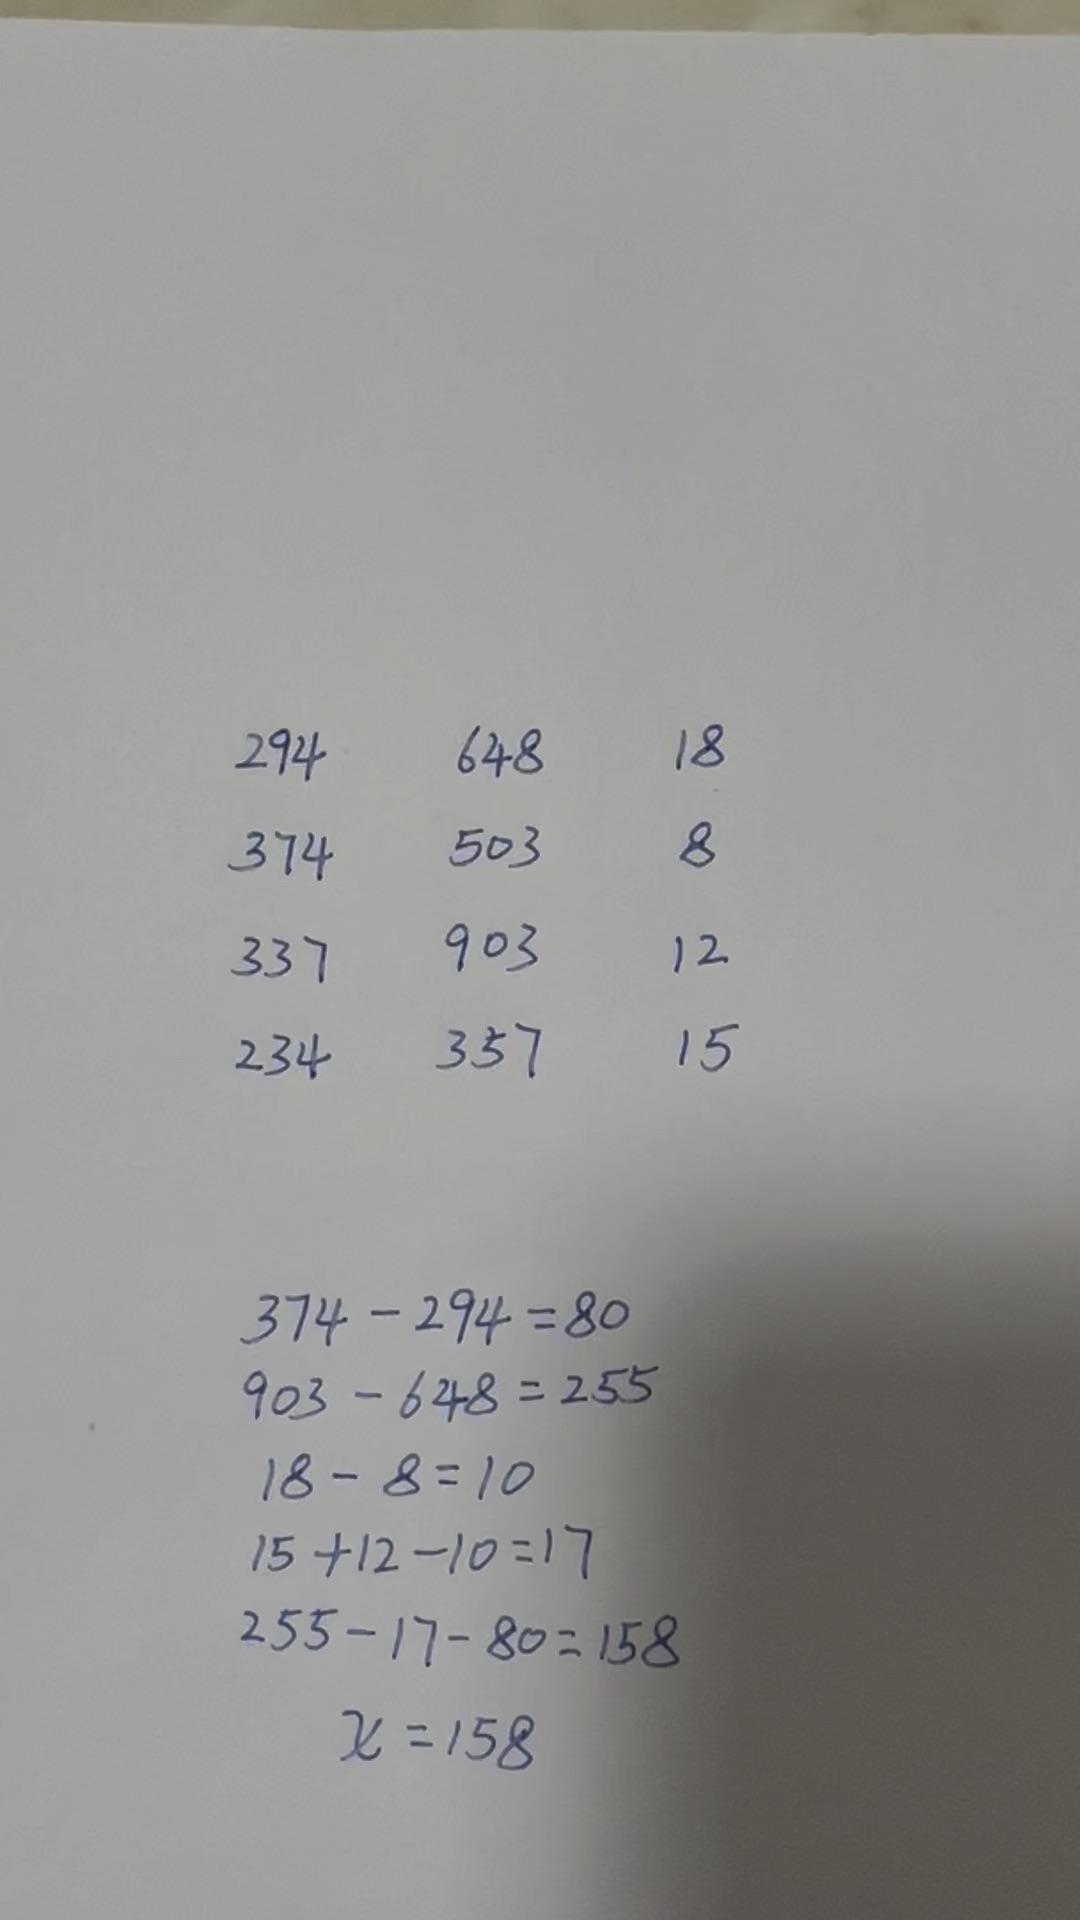 294 648 18
374 503 8
337 903 12
234 357 15
374 - 294 = 80
903 - 648 = 255
18 - 8 = 10
15 + 12 - 10 = 17
255 - 17 - 80 = 158
x = 158